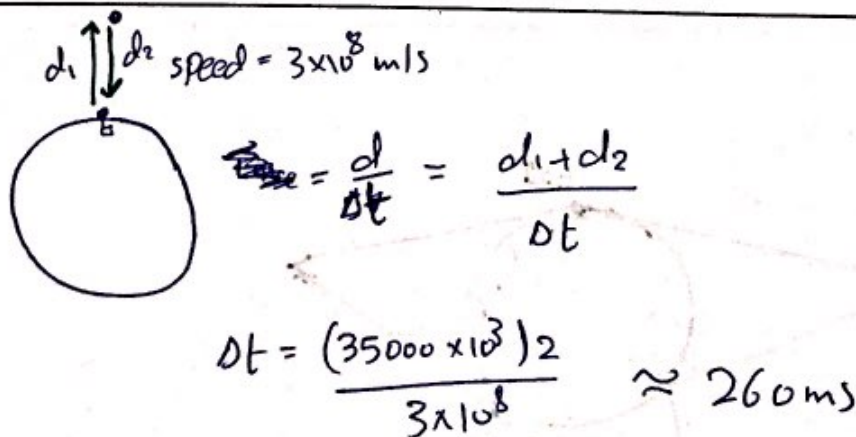 d₁ d₂ speed = 3×10⁸ m/s
= d/Δt = (d₁+d₂)/Δt
Δt = (35000 ×10³)2 / 3×10⁸ ≈ 260ms